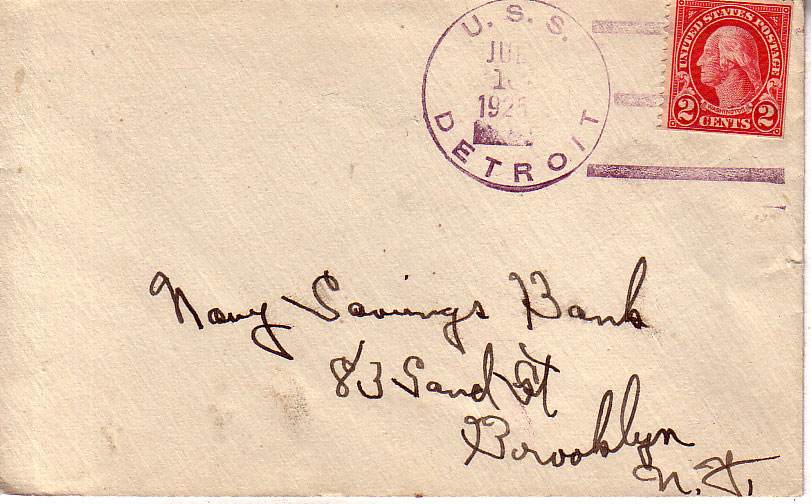 U. S. S.
1925
DETROIT
UNITED STATES POSTAGE
WASHINGTON
2 CENTS 2
Navy Savings Bank
83 Sand St
Brooklyn
N. Y.